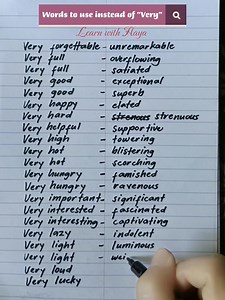 Words to use instead of "Very"
Learn with Haya
Very forgettable - unremarkable
Very full - overflowing
Very full - satiated
Very good - exceptional
Very good - superb
Very happy - elated
Very hard - strenous strenuous
Very helpful - supportive
Very high - towering
Very hot - blistering
Very hot - scorching
Very hungry - famished
Very hungry - ravenous
Very important - significant
Very interested - fascinated
Very interesting - captivating
Very lazy - indolent
Very light - luminous
Very light - wei
Very loud
Very lucky